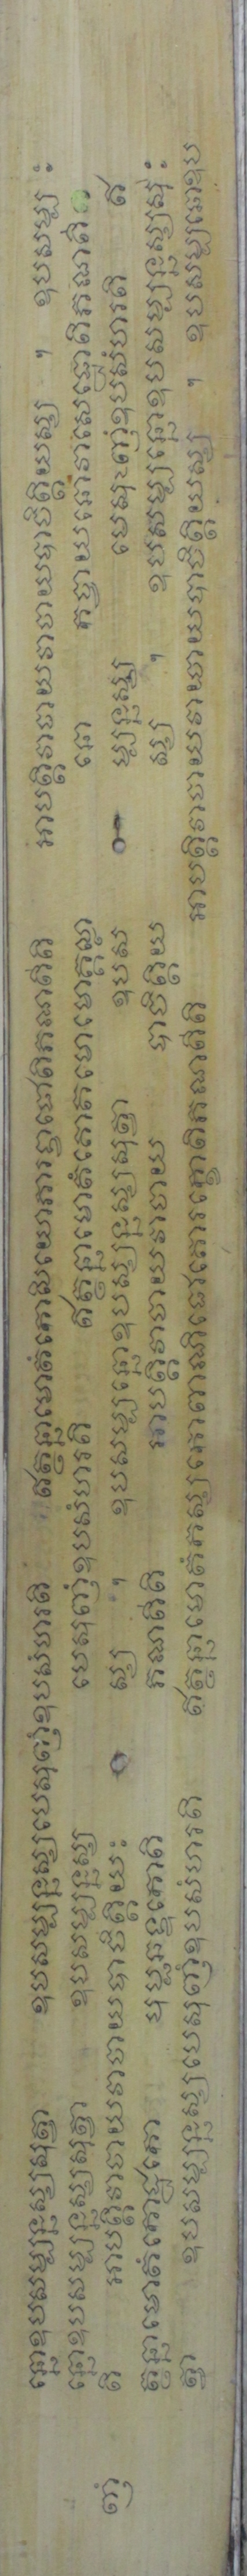 ន្នោឧបសម្បន្នស្សសុត្វា ឧបសម្បន្នស្សបេសុញ្ញំឧបសំហរតិ ឥត្ថន្នាមោតំកោសិយោភារទ្វាជោតិភណតីតិ អាបត្តិវាចាយវាចាយបាចិត្តិយស្ស ។ ឧបសម្ប ៈ
ន្នោឧបសម្បន្នស្សសុត្វា ឧបសម្បន្នស្ស បេសុញ្ញំឧបសំហរតិ ឥត្ថន្នាមោតំគោតមោមោគ្គល្លា នោ កច្ចាយនោវាសេដ្ឋោតិភណតី
ញំ តិ អាបត្តិវាចាយវាចាយបាចិត្តិយៈ ស្ស ។ ឧបសម្បន្នោឧបស្បន្នស្សសុត្វា ឧបស ម្បន្នស្ស បេសុញ្ញំឧបសំហរតិ ឥ
ត្ថន្នាមោតំកោដ្ឋកោ បុប្ផឆឌ្ឌកោតិ ភណតីតិ អាបត្តិវាចាយវាចាយ បាចិត្តិយ ស្ស ។ ឧបសម្បន្នោឧបសម្បន្នស្សសុ ៈ
ត្វា ឧបសម្បន្នស្សបេសុញ្ញំឧបសំហរតិ ឥត្ថន្នាមោតំកស្សកោពាណិជោគោរក្ខោតិភណតីតិ អាបត្តិវាចាយវាចាយបាចិត្តិយស្ស ។ ឧបសម្បនោឧប